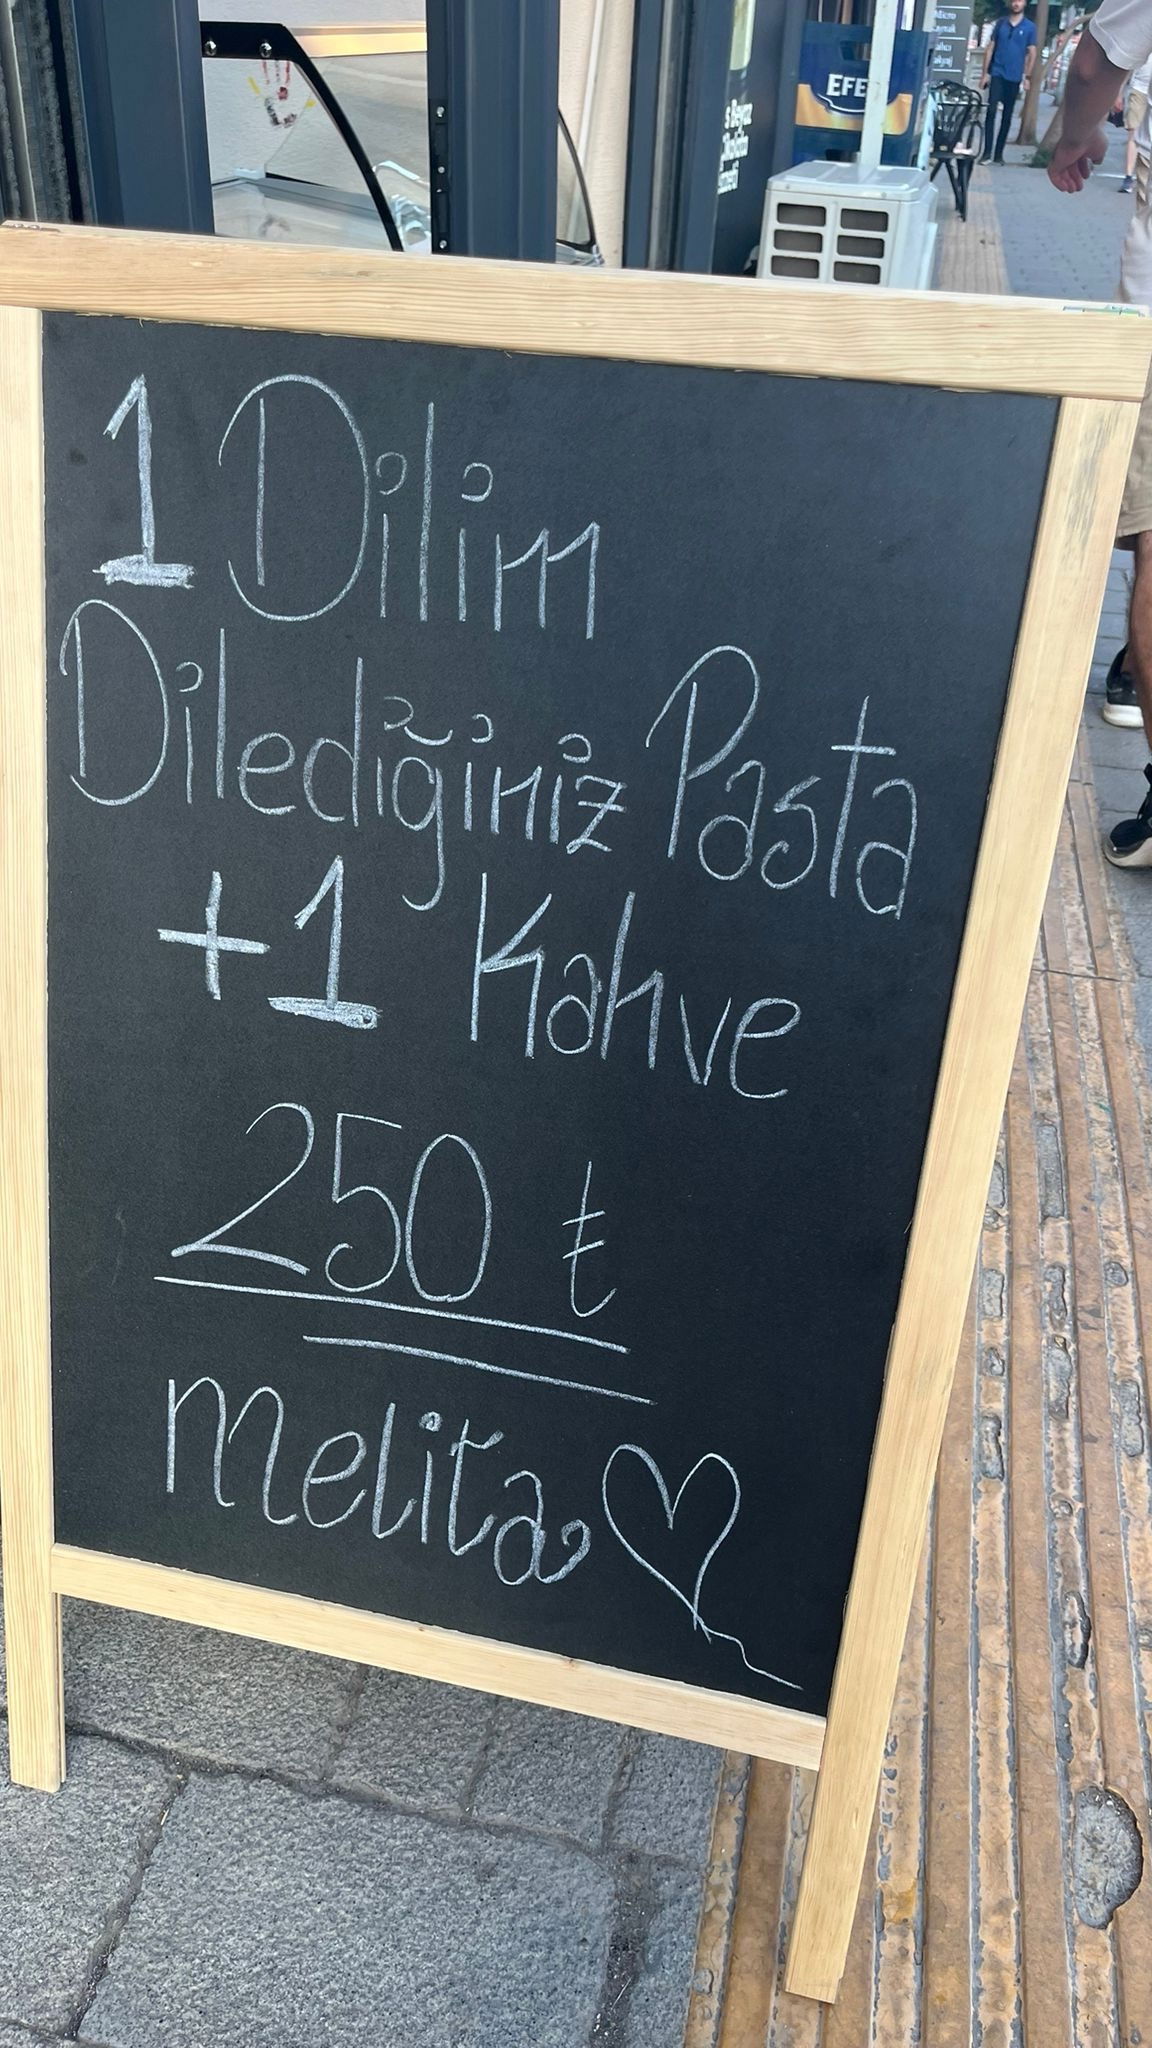 1 Dilim
Dilediğiniz Pasta
+1 Kahve
250 ₺
Melita
EFES
Micro